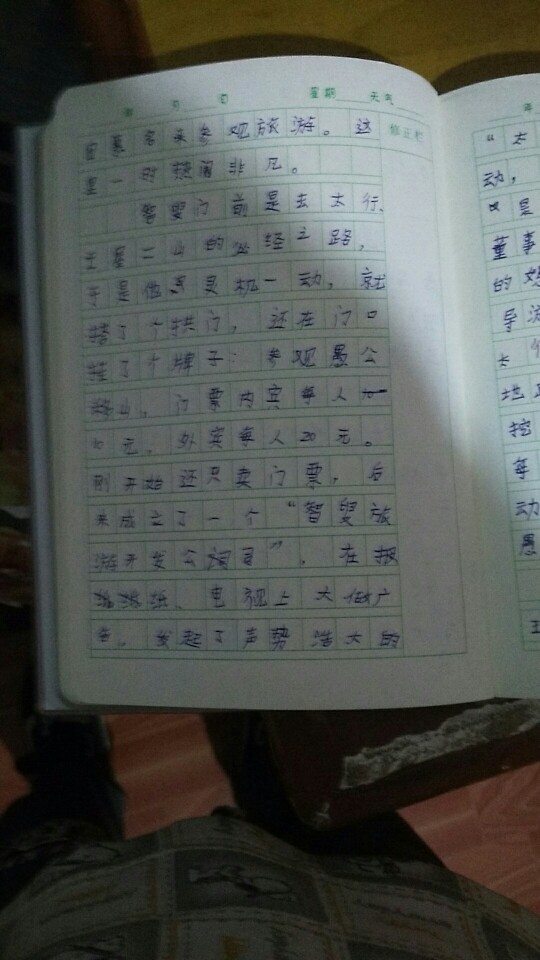 月 日 星期 天气
客来参观旅游。这 修正栏
一时热闹非凡。
智叟门前是去太行、
王屋二山的必经之路，
于是他灵机一动，就
搭了个拱门，还在门口
挂了个牌子：参观愚公
移山，门票内宾每人
10元，外宾每人20元。
刚开始还只卖门票，后
来成立了一个“智叟旅
游开发公司”，在报
纸、电视上大做广
告，发起了声势浩大的
年
“太
动，
又是
董事
的
导游
太行
地
挖
每
动
愚
王